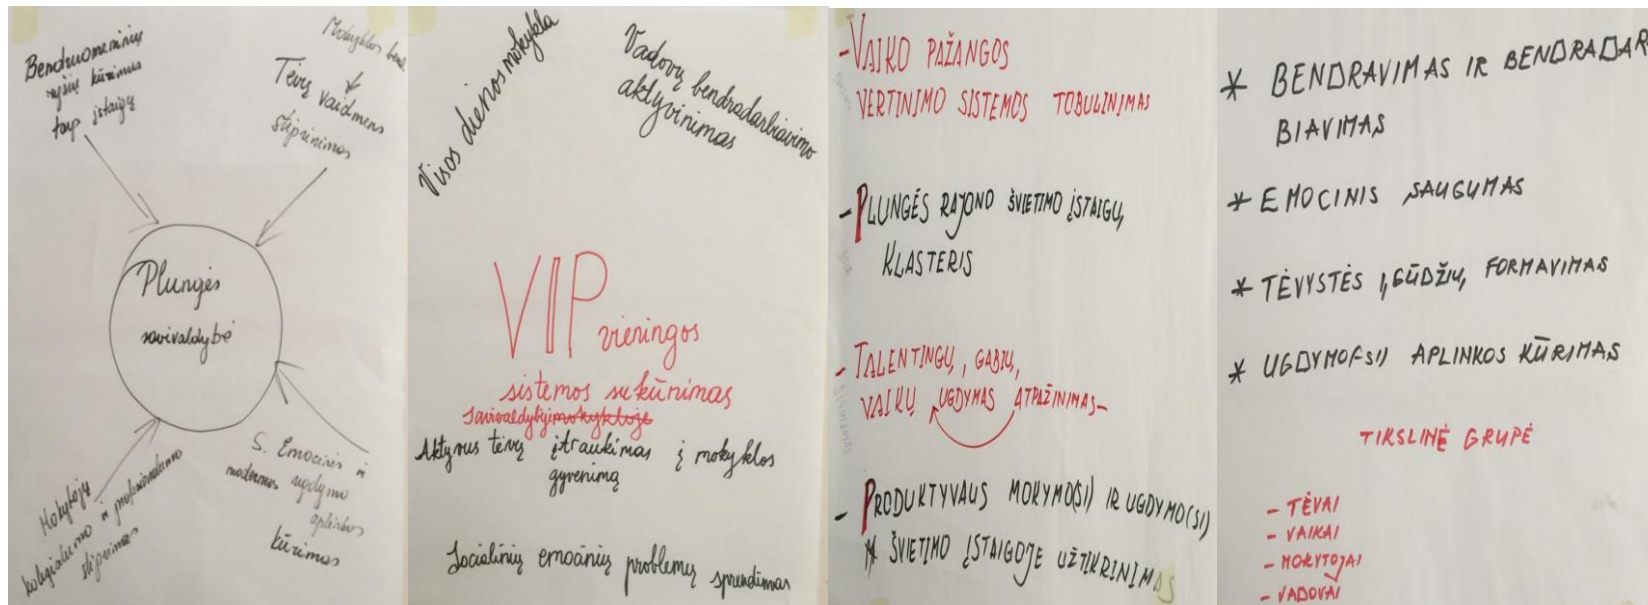 Bendruomeninių
ryšių kūrimas
tarp įstaigų
Mokyklos bend.
Tėvų vaidmens
stiprinimas
Plungės
savivaldybė
Mokytojų
kolegialumo ir profesionalumo
stiprinimas
S. Emocinis ir
modernios ugdymo
aplinkos
kūrimas
Visos dienos mokykla
Vadovų bendradarbiavimo
aktyvinimas
VIP vieningos
sistemos sukūrimas
Savivaldybėje mokykloje
Aktyvus tėvų įtraukimas į mokyklos
gyvenimą
Socialinių emocinių problemų sprendimas
- VAIKO PAŽANGOS
VERTINIMO SISTEMOS TOBULINIMAS
- PLUNGĖS RAJONO ŠVIETIMO ĮSTAIGŲ
KLASTERIS
- TALENTINGŲ, GABIŲ,
VAIKŲ UGDYMAS ATPAŽINIMAS-
- PRODUKTYVAUS MOKYMO(SI) IR UGDYMO(SI)
ŠVIETIMO ĮSTAIGOJE UŽTIKRINIMAS
* BENDRAVIMAS IR BENDRADAR
BIAVIMAS
* EMOCINIS SAUGUMAS
* TĖVYSTĖS ĮGŪDŽIŲ FORMAVIMAS
* UGDYMO(SI) APLINKOS KŪRIMAS
TIKSLINĖ GRUPĖ
- TĖVAI
- VAIKAI
- MOKYTOJAI
- VADOVAI